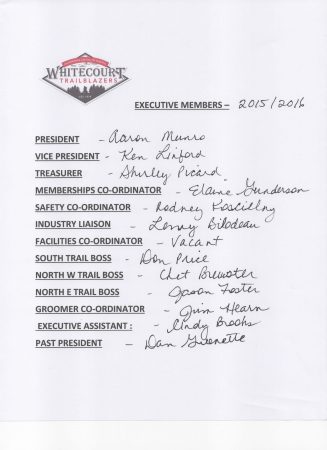 WHITECOURT
TRAILBLAZERS
EXECUTIVE MEMBERS – 2015/2016
PRESIDENT - Aaron Munro
VICE PRESIDENT - Ken Linford
TREASURER - Shirley Picard
MEMBERSHIPS CO-ORDINATOR - Elaine Gunderson
SAFETY CO-ORDINATOR - Rodney Koscielny
INDUSTRY LIAISON - Lenny Bilodeau
FACILITIES CO-ORDINATOR - Vacant
SOUTH TRAIL BOSS - Don Price
NORTH W TRAIL BOSS - Chet Brewster
NORTH E TRAIL BOSS - Jason Foster
GROOMER CO-ORDINATOR - Jim Hearn
EXECUTIVE ASSISTANT : - Cindy Brooks
PAST PRESIDENT - Dan